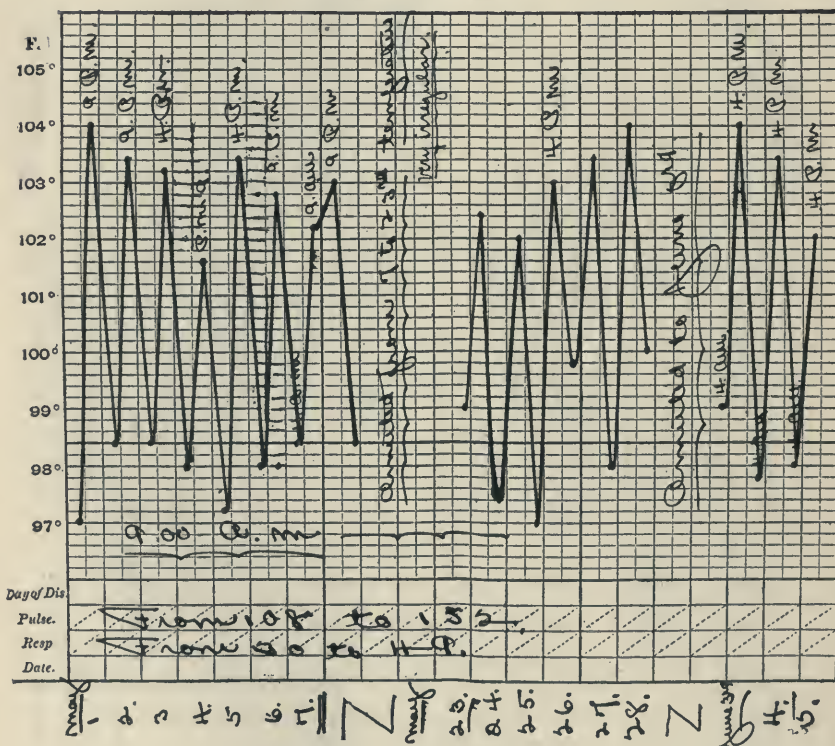 F.
105°
104°
103°
102°
101°
100°
99°
98°
97°
9. P.m.
9. P.m.
4. P.m.
4. P.m.
9. P.m
9. am
9 P.m
4. a.m
Omitted from 7 to 23rd temperature
very irregular.
4 P.m
Omitted to June 3rd
4. am
4. P.m.
4 P.m
4. P.m
9.00 a.m
Day of Dis
Pulse. From 108 to 132.
Resp From 40 to 48.
Date.
May 1. 2. 3 4. 5 6. 7. May 23. 24. 25. 26. 27. 28. June 3rd 4. 5.